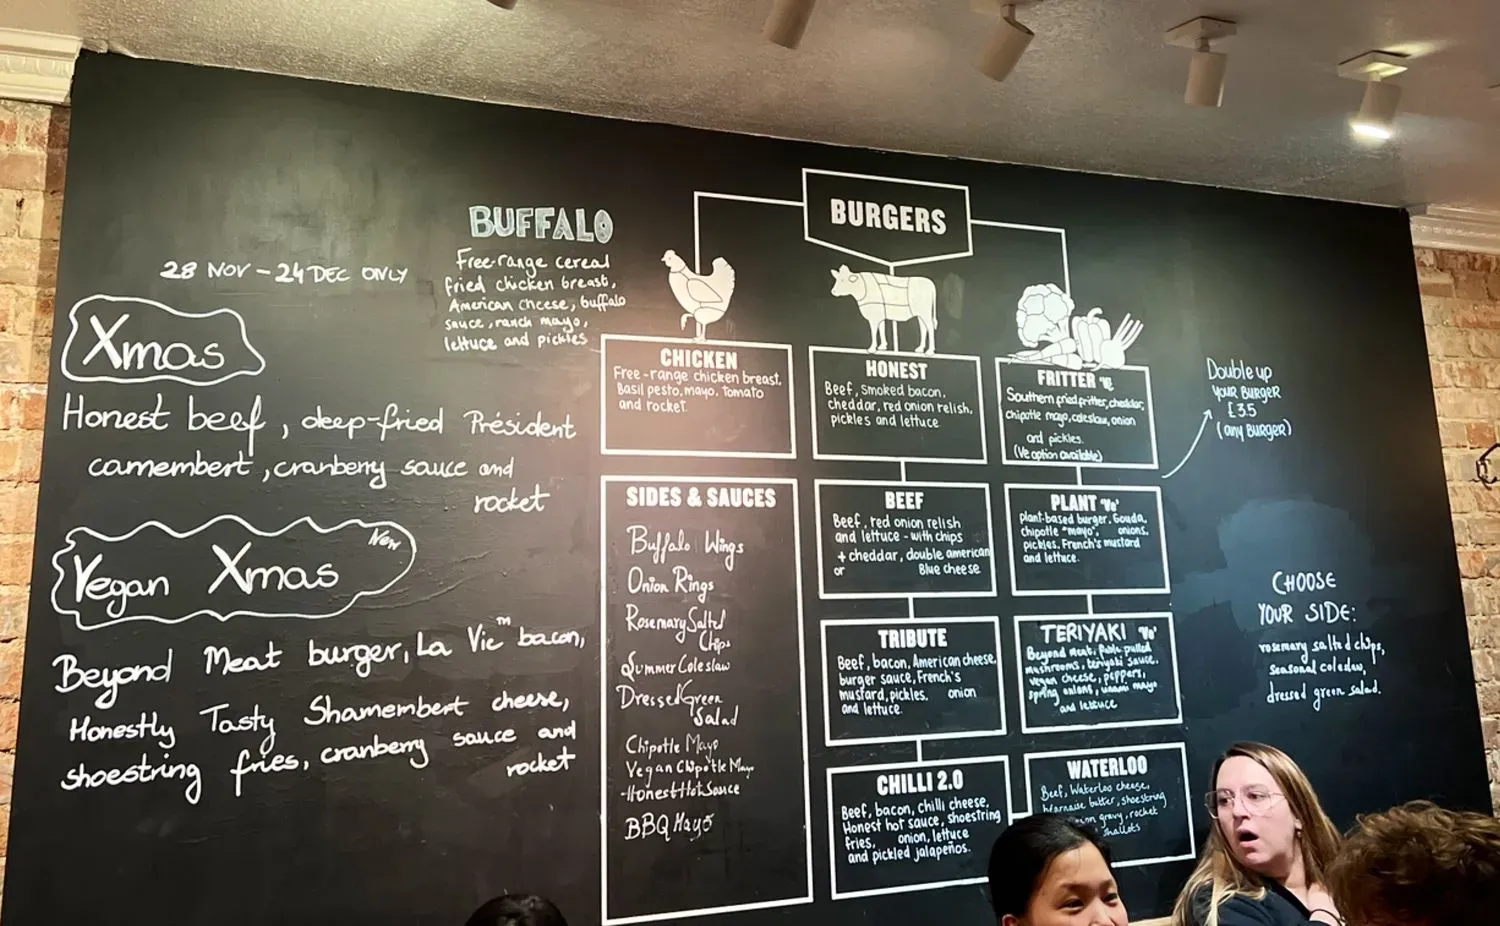 28 NOV – 24 DEC ONLY
Xmas
Honest beef, deep-fried Président
camembert, cranberry sauce and
rocket
New
Vegan Xmas
Beyond Meat burger, La Vie™ bacon,
Honestly Tasty Shamembert cheese,
shoestring fries, cranberry sauce and
rocket
BUFFALO
Free-range cereal
fried chicken breast,
American cheese, buffalo
sauce, ranch mayo,
lettuce and pickles
BURGERS
CHICKEN
Free-range chicken breast.
Basil pesto, mayo, tomato
and rocket.
SIDES & SAUCES
Buffalo Wings
Onion Rings
Rosemary Salted
Chips
Summer Coleslaw
Dressed Green
Salad
Chipotle Mayo
Vegan Chipotle Mayo
Honest Hot Sauce
BBQ Mayo
HONEST
Beef, smoked bacon,
cheddar, red onion relish,
pickles and lettuce
BEEF
Beef, red onion relish
and lettuce - with chips
+ cheddar, double american
or Blue cheese
TRIBUTE
Beef, bacon, American cheese,
burger sauce, French's
mustard, pickles, onion
and lettuce.
CHILLI 2.0
Beef, bacon, chilli cheese,
Honest hot sauce, shoestring
fries, onion, lettuce
and pickled jalapeños.
FRITTER 'V'
Southern fried fritter, cheddar,
chipotle mayo, coleslaw, onion
and pickles.
(Ve option available)
PLANT 'Ve'
plant-based burger, Gouda,
chipotle "mayo", onions,
pickles, French's mustard
and lettuce.
TERIYAKI 'Ve'
Beyond meat, fable pulled
mushrooms, teriyaki sauce,
vegan cheese, peppers,
spring onions, umami mayo
and lettuce
WATERLOO
Beef, Waterloo cheese,
béarnaise butter, shoestring
gravy, rocket
shallots
Double up
YOUR BURGER
£3.5
(any BURGER)
CHOOSE
YOUR SIDE:
rosemary salted chips,
seasonal coleslaw,
dressed green salad.